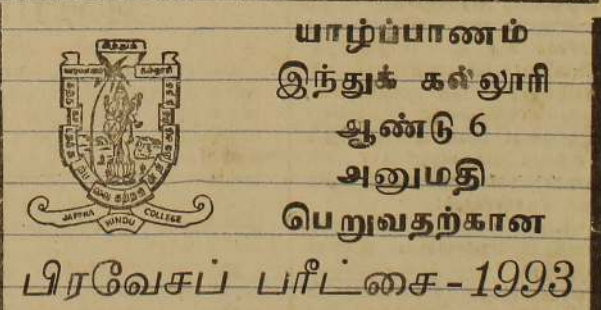 இந்துக்
JAFFNA HINDU COLLEGE
யாழ்ப்பாணம்
இந்துக் கல்லூரி
ஆண்டு 6
அனுமதி
பெறுவதற்கான
பிரவேசப் பரீட்சை-1993